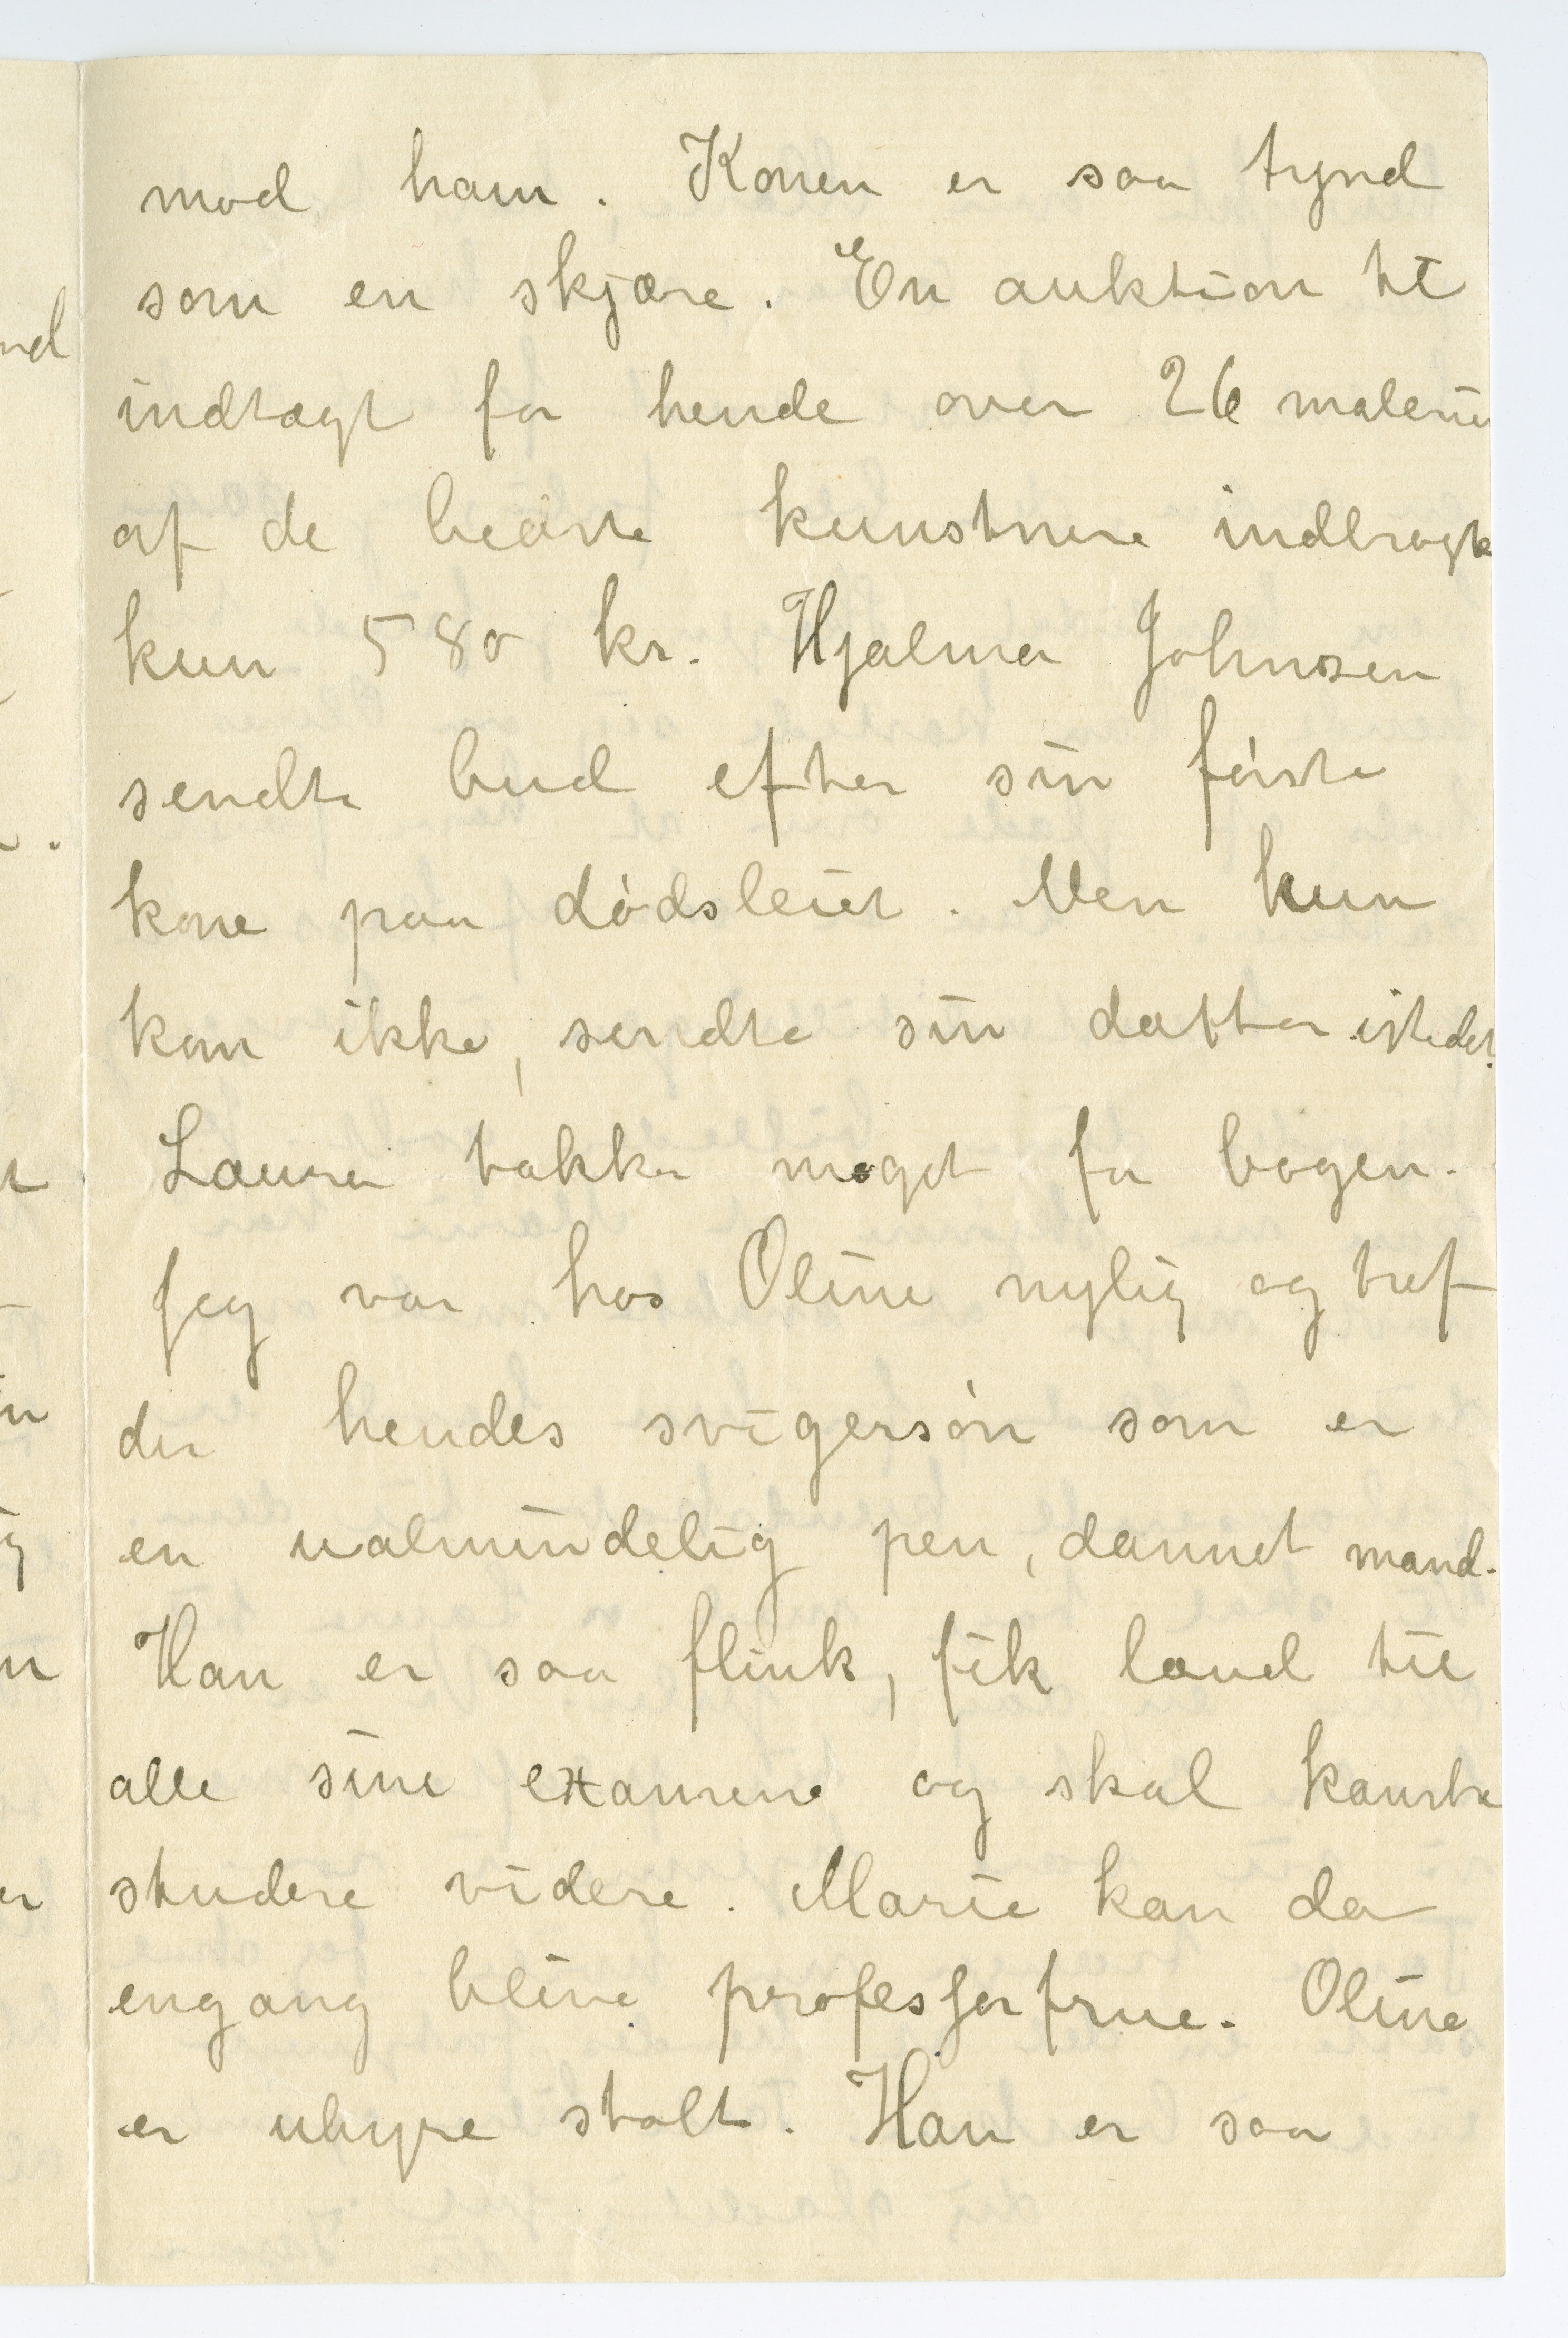 mod ham. Konen er saa tynd
som en skjære. En auktion til
indtægt for hende over 26 malerier
af de bedste kunstnere indbragte
kun 580 kr. Hjalmar Johnsen
sendte bud efter sin første
kone paa dødsleiet. Men hun
kom ikke, sendte sin datter istedet.
Laura takker meget for bogen.
Jeg var hos Oline nylig og traf
der hendes svigersøn som er
en ualmindelig pen, dannet mand.
Han er saa flink, fik laud til
alle sine examene og skal kanske
studere videre. Marie kan da
engang blive professorfrue. Oline
er uhyre stolt. Han er saa